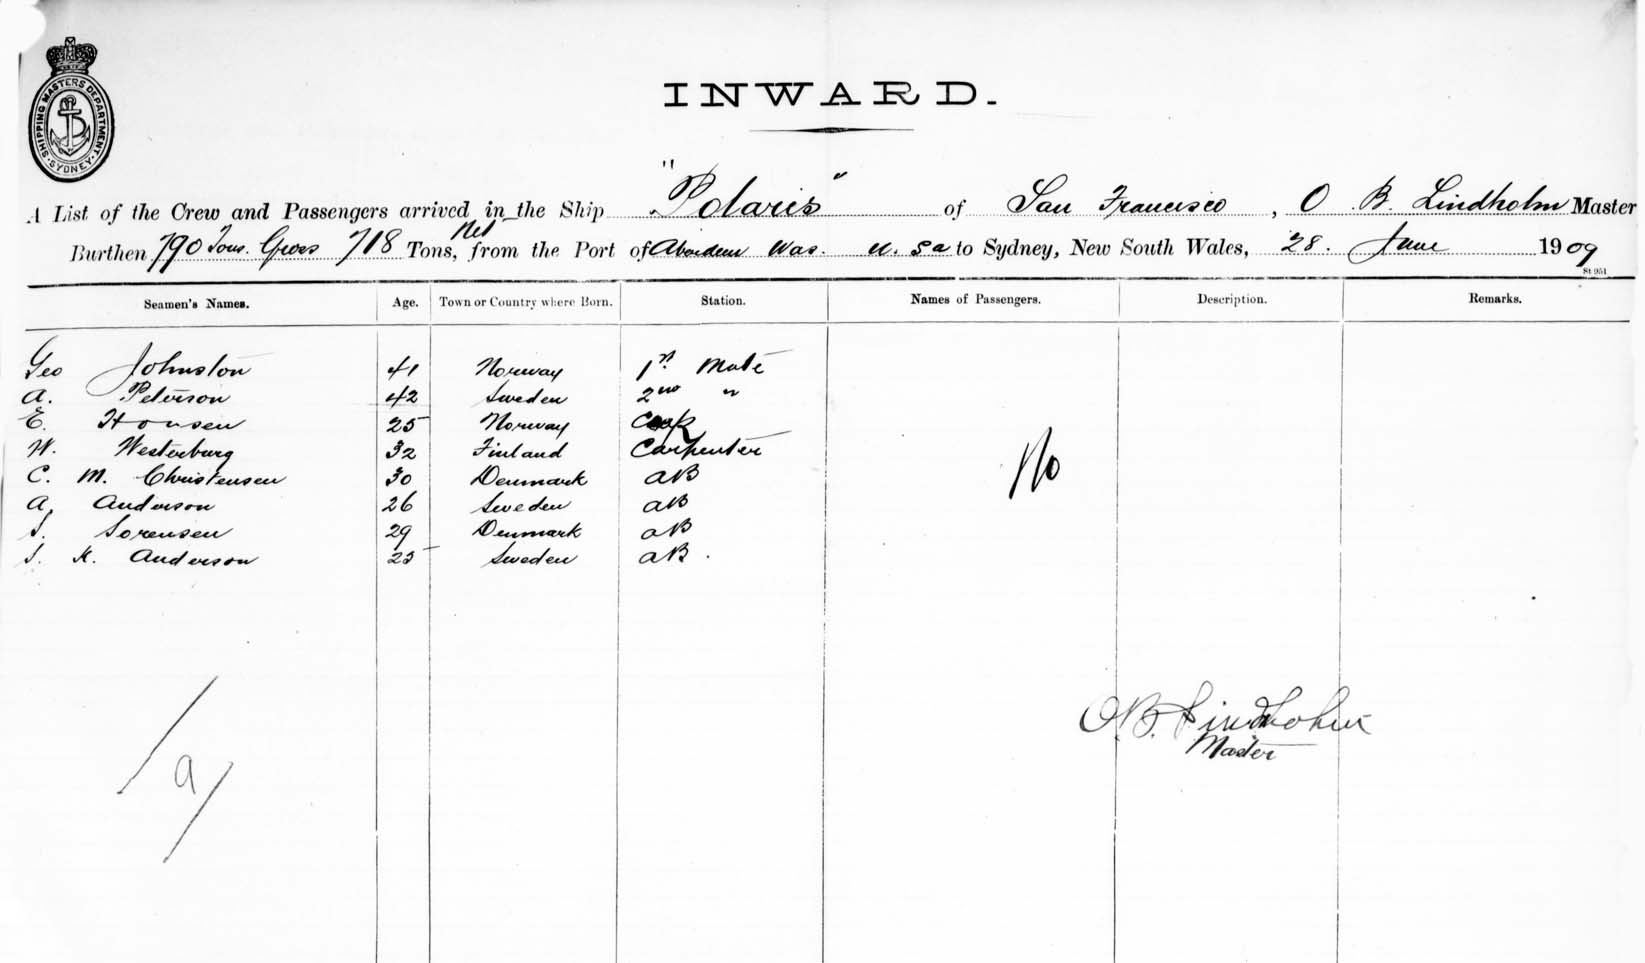 SHIPPING MASTERS DEPARTMENT. SYDNEY
INWARD.
A List of the Crew and Passengers arrived in the Ship "Polaris" of San Francisco, O B. Lindholm Master
Burthen 790 Tons. Gross 718 Tons, Net from the Port of Aberdeen Was. U. Sa to Sydney, New South Wales, 28. June 1909
St 951
Seamen's Names. Age. Town or Country where Born. Station. Names of Passengers. Description. Remarks.
Geo Johnston 41 Norway 1st Mate
A. Peterson 42 Sweden 2nd "
E. Hansen 25 Norway Cook
W. Westerburg 32 Finland Carpenter
C. M. Christensen 30 Denmark AB
A. Anderson 26 Sweden AB
S. Sorensen 29 Denmark AB
S. K. Anderson 25 Sweden AB.
No
O.B. Lindholm
Master
a